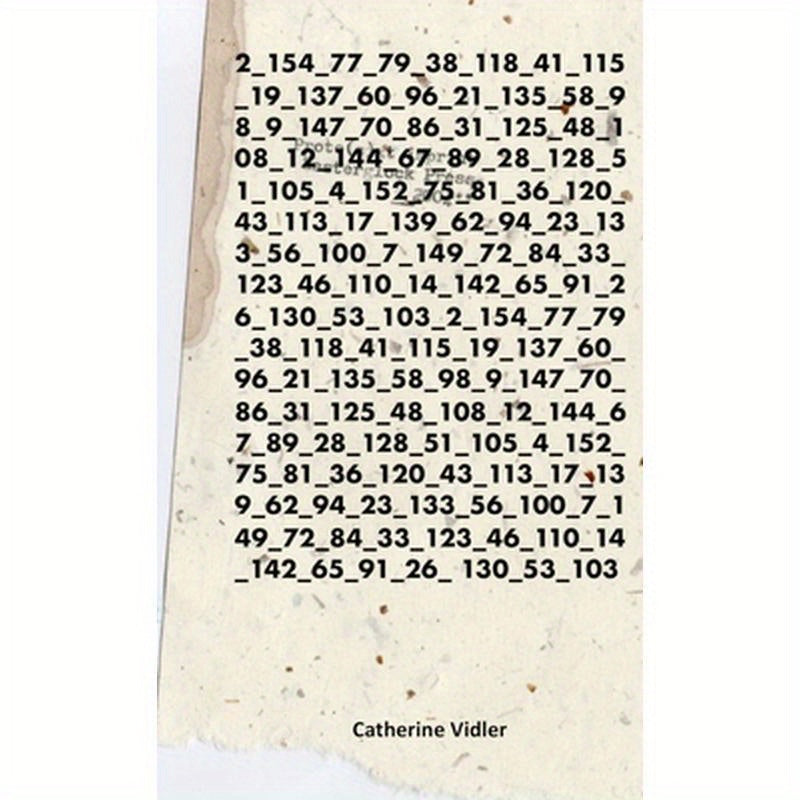 2_154_77_79_38_118_41_115
_19_137_60_96_21_135_58_9
8_9_147_70_86_31_125_48_1
08_12_144_67_89_28_128_5
1_105_4_152_75_81_36_120_
43_113_17_139_62_94_23_13
3_56_100_7_149_72_84_33_
123_46_110_14_142_65_91_2
6_130_53_103_2_154_77_79
_38_118_41_115_19_137_60_
96_21_135_58_98_9_147_70_
86_31_125_48_108_12_144_6
7_89_28_128_51_105_4_152_
75_81_36_120_43_113_17_13
9_62_94_23_133_56_100_7_1
49_72_84_33_123_46_110_14
_142_65_91_26_ 130_53_103
Catherine Vidler